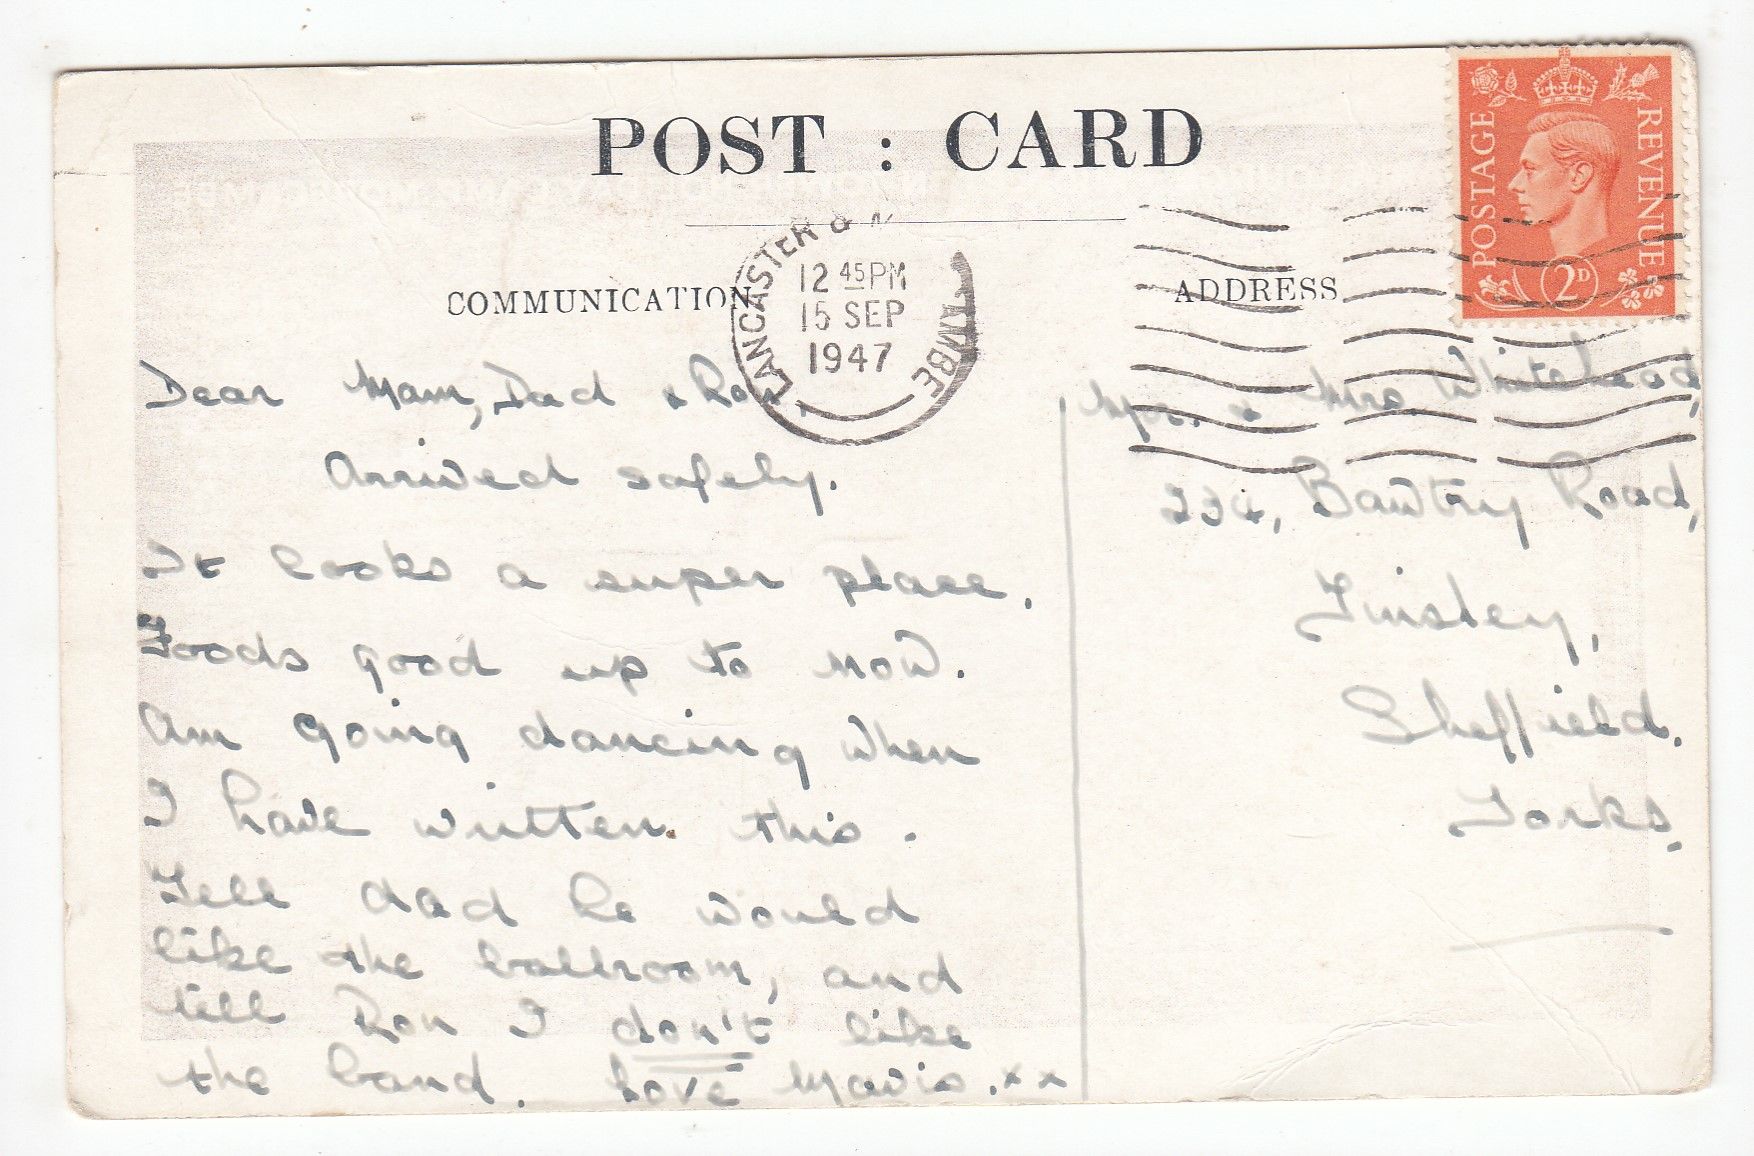 POST : CARD
POSTAGE
REVENUE
2D
LANCASTER &
12 45PM
15 SEP
1947
COMMUNICATION
ADDRESS
Dear Mam, Dad & Ron,
Arrived safely.
It looks a super place.
Foods good up to now.
Am going dancing when
I have written this.
Tell dad he would
like the ballroom, and
tell Ron I don't like
the band. Love Mavis. xx
Mr. & Mrs Whitehead,
234, Bawtry Road,
Tinsley,
Sheffield.
Yorks.